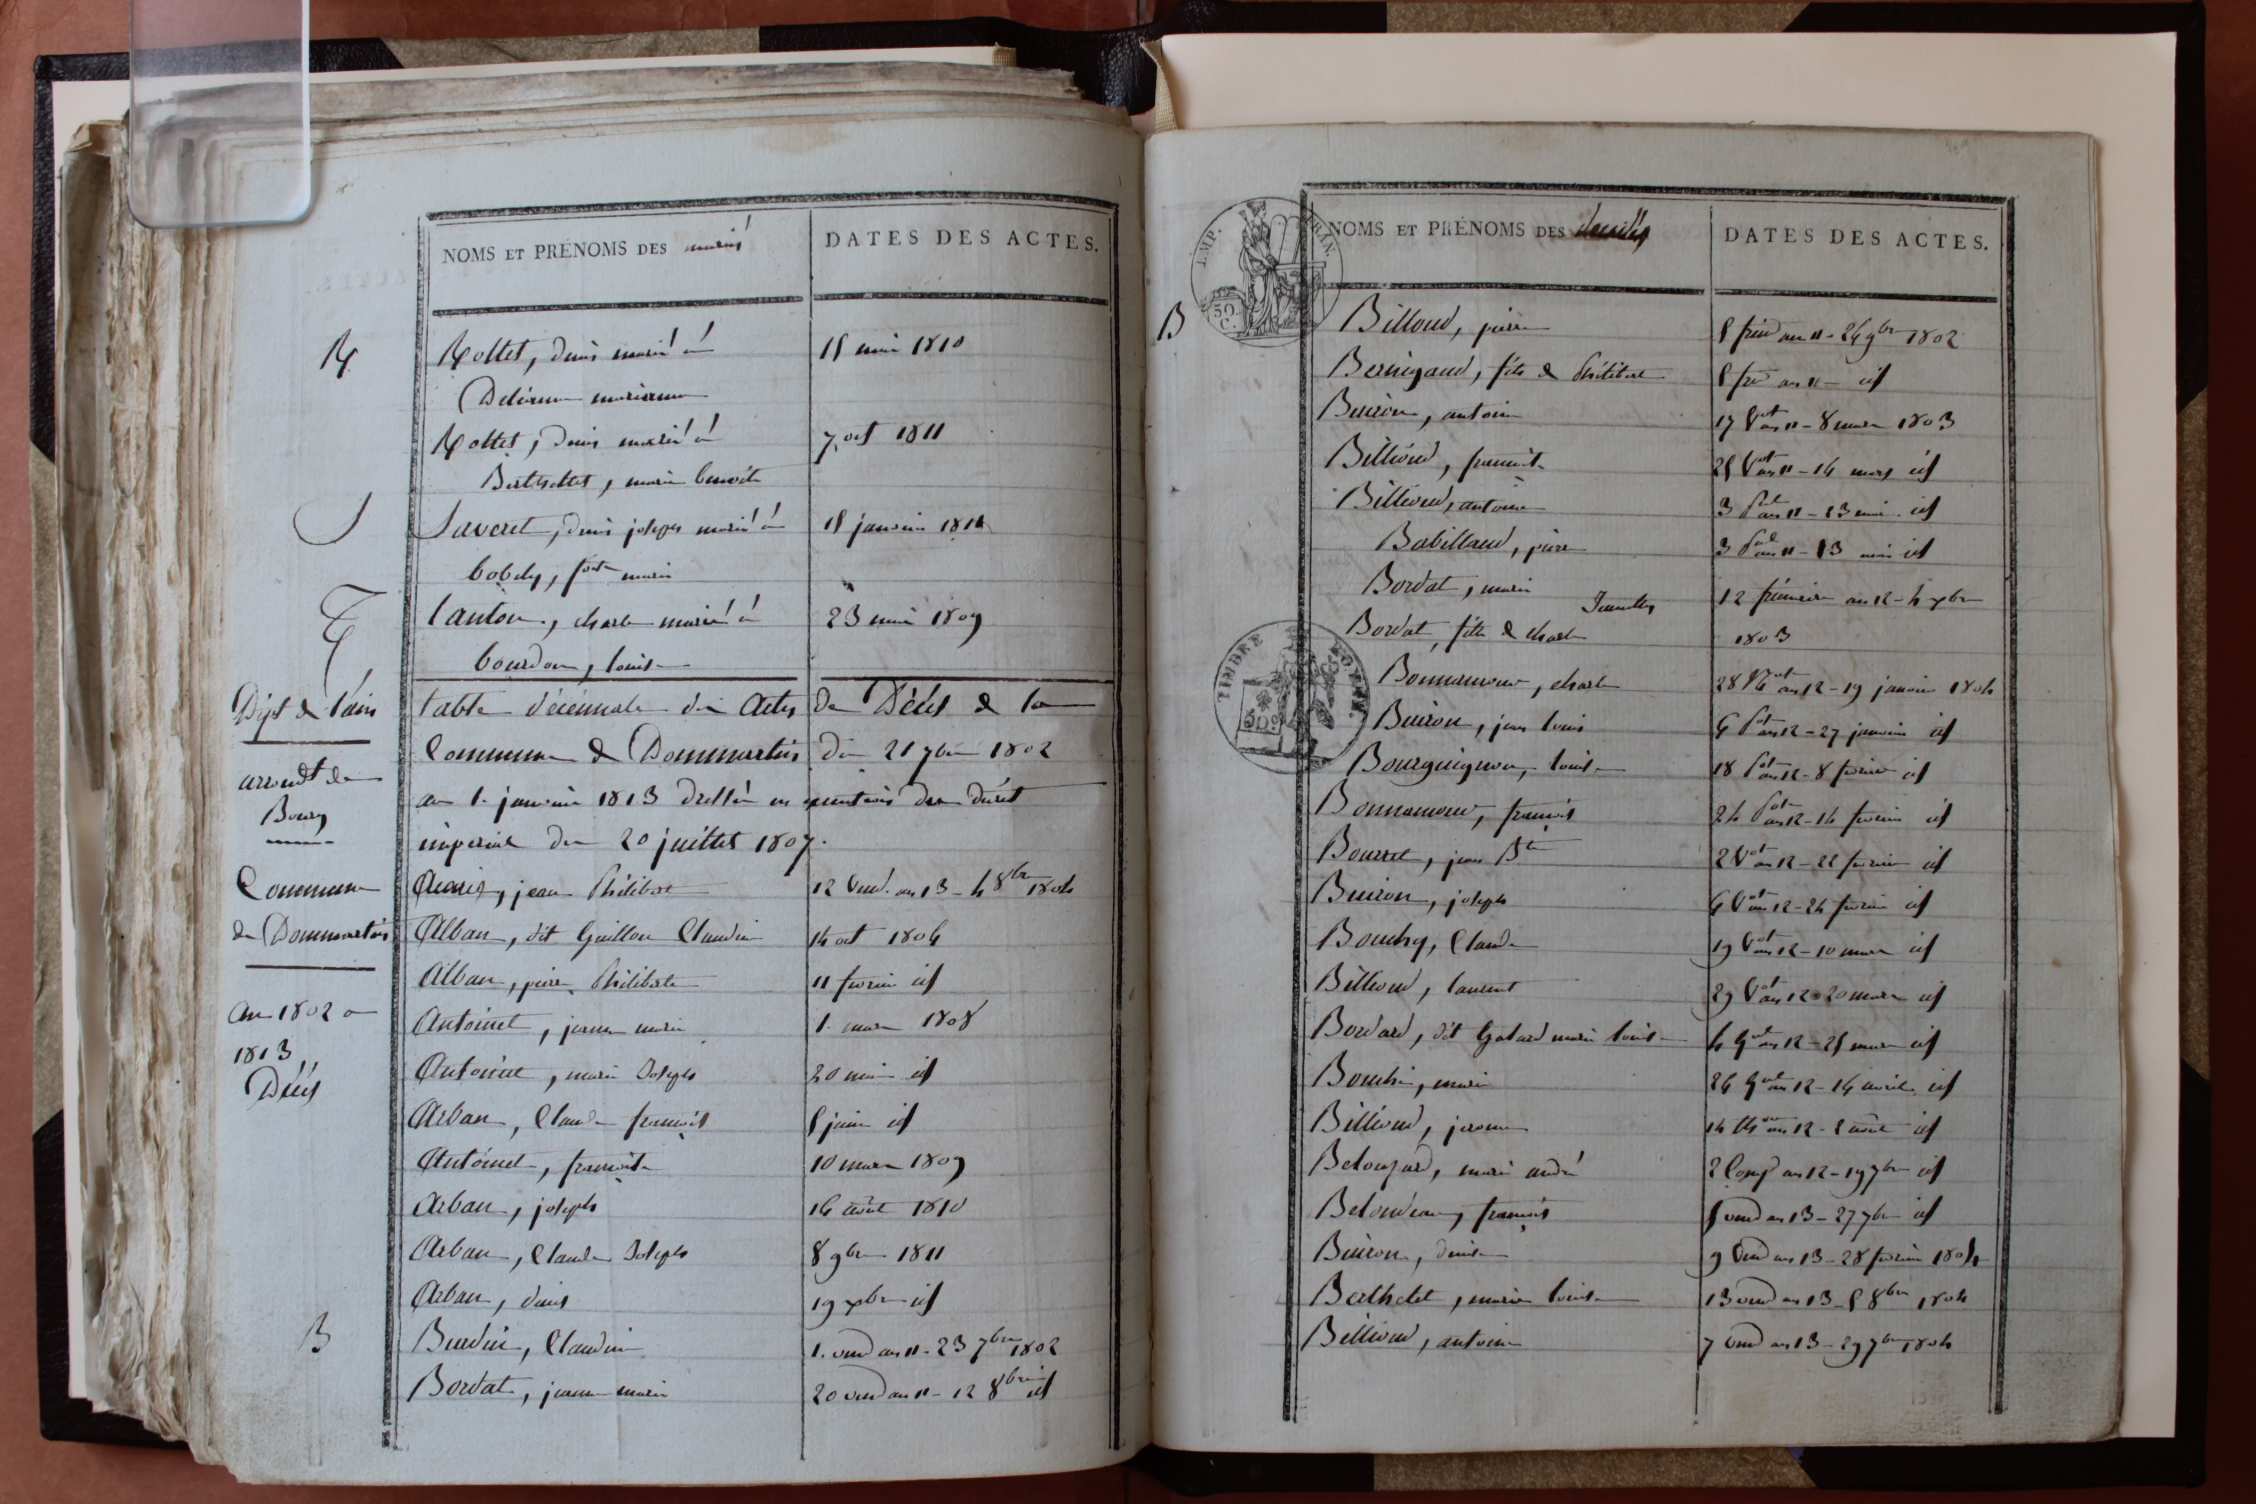 NOMS ET PRÉNOMS DES mariés
DATES DES ACTES.
R
Rottet, denis marié à
15 mai 1810
Rottet, denis marié à
7 oct 1811
Berthollet, marie benoite
S
Saveret, denis joseph marié à
15 janvier
marie
T
tanton, charle marié à
23 mai 1809
bourdon, louise
Dépt de l'ain
table décénnale des Actes de Décès de la
Commune de Dommartin du 21 7bre 1802
arrondt de
Bourg
au 1. janvier 1813 dressée en du décret
impérial du 20 juillet 1807.
Commune
de Dommartin
an 1802 a
1813
Décès
jean Philibert
12 vend. an 13 - 4 8bre 1804
Alban, dit Guillon Claudine
14 oct 1806
Alban, pierre Philiberte
11 février id
Antoinet, jeanne marie
1. mars 1808
Antoinet, marie Joseph
20 mai id
Arban, Claude françois
5 juin id
Antoinet, françoise
10 mars 1809
Arban, joseph
16 août 1810
Arban, Claude Joseph
8 9bre 1811
Arban, denis
19 xbre id
B
Burdin, Claudine
1. vend an 11 - 23 7bre 1802
Bordat, jeanne marie
20 vend an 11 - 12 8bre id
IMP.
50.
C.
NOMS ET PRÉNOMS DES décédés
DATES DES ACTES.
B
Billoud, pierre
5 frim an 11 - 26 9bre 1802
Bernigaud, fils de Philibert
5 fri an 11 - id
Buiron, antoine
17 Vot an 11 - 8 mars 1803
Billioud, françoise
25 Vot an 11 - 16 mars id
Billioud, antoine
3 an 11 - 23 mai id
Babillaud, pierre
3 an 11 - 13 mai id
Bordat, marie
Jumelles
12 frimaire an 12 - 4 xbre
Bordat, fille de charle
1803
Bonnamour, charle
28 an 12 - 19 janvier 1804
TIMBRE
ROYAL.
Buiron, jean louis
6 Pot an 12 - 27 janvier id
Bourguignon, louise
18 Pot an 12 - 8 février id
Bonnamour, françois
24 Pot an 12 - 14 février id
Bourret, jean Bte
2 Vot an 12 - 22 février id
Buiron, joseph
6 Vot an 12 - 26 février id
Bouchy, Claude
19 Vot an 12 - 10 mars id
Billioud, laurent
29 Vot an 12 - 20 mars id
Bordard, dit Galard marie louise
4 Gal an 12 - 25 mars id
marie
24 Gal an 12 - 14 avril id
Billioud, jerome
14 an 12 - 2 août id
marie andré
2 Compl an 12 - 19 7bre id
Beloudeau, françois
5 vend an 13 - 27 7bre id
Buiron, denise
9 vend an 13 - 28 février 1804
Berthelet, marie louise
13 vend an 13 - 5 8bre 1804
Billioud, antoine
7 vend an 13 - 29 7bre 1804